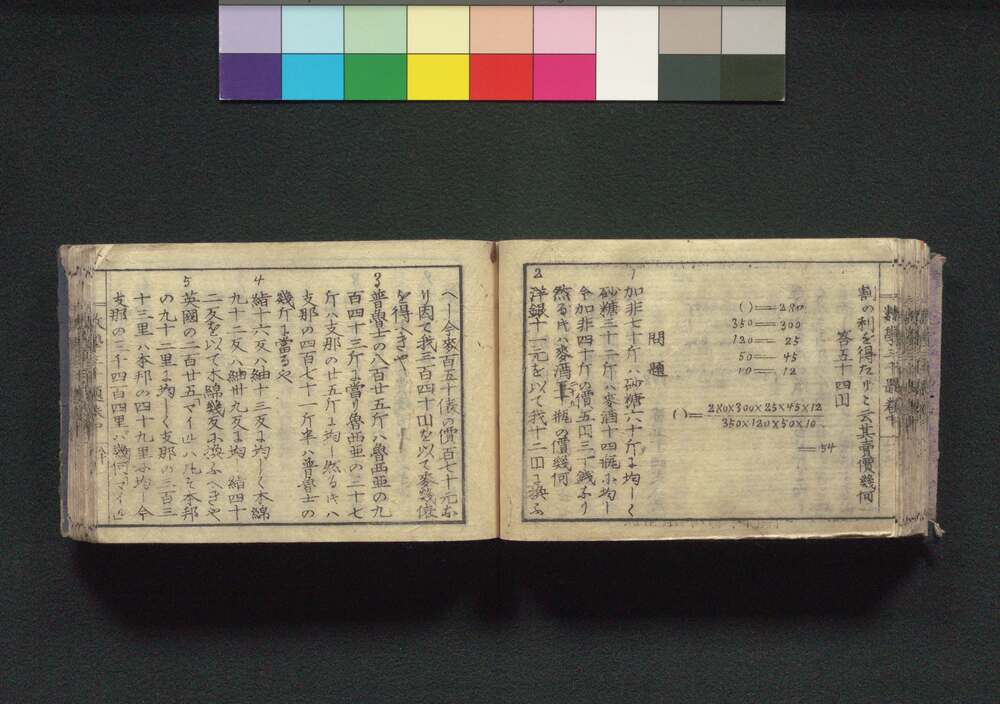 割の利を得たりと云其賣價幾何
答五十四圓
( )＝280
350＝300
120＝25
50＝45
10＝12
( )＝280×300×25×45×12
350×120×50×10
＝54
問題
1 加非七十斤ハ砂糖六十斤に均しく
砂糖三十二斤ハ麥酒十四瓶に均し
今加非四十斤の價五圓三十錢なり
然る片ハ麥酒 瓶の價幾何
2 洋銀十一元を以て我十二圓に換ふ
へし今麥百五十俵の價百七十元な
り因て我三百四十圓を以て麥幾俵
を得へきや
3 普魯士の八百廿五斤ハ魯西亜の九
百四十三斤に當り魯西亜の三十七
斤ハ支那の廿五斤に均し然る片ハ
支那の四百七十一斤半ハ普魯士の
幾斤に當るや
4 絹十六反ハ紬十三反に均しく木綿
九十二反ハ紬卅九反に均し絹四十
二反を以て木綿幾反に換ふへきや
5 英國の二百廿五マイルハ凡そ本邦
の九十二里に均しく支那の三百三
十三里ハ本邦の四十九里に均し今
支那の三千四百四里ハ幾何マイル